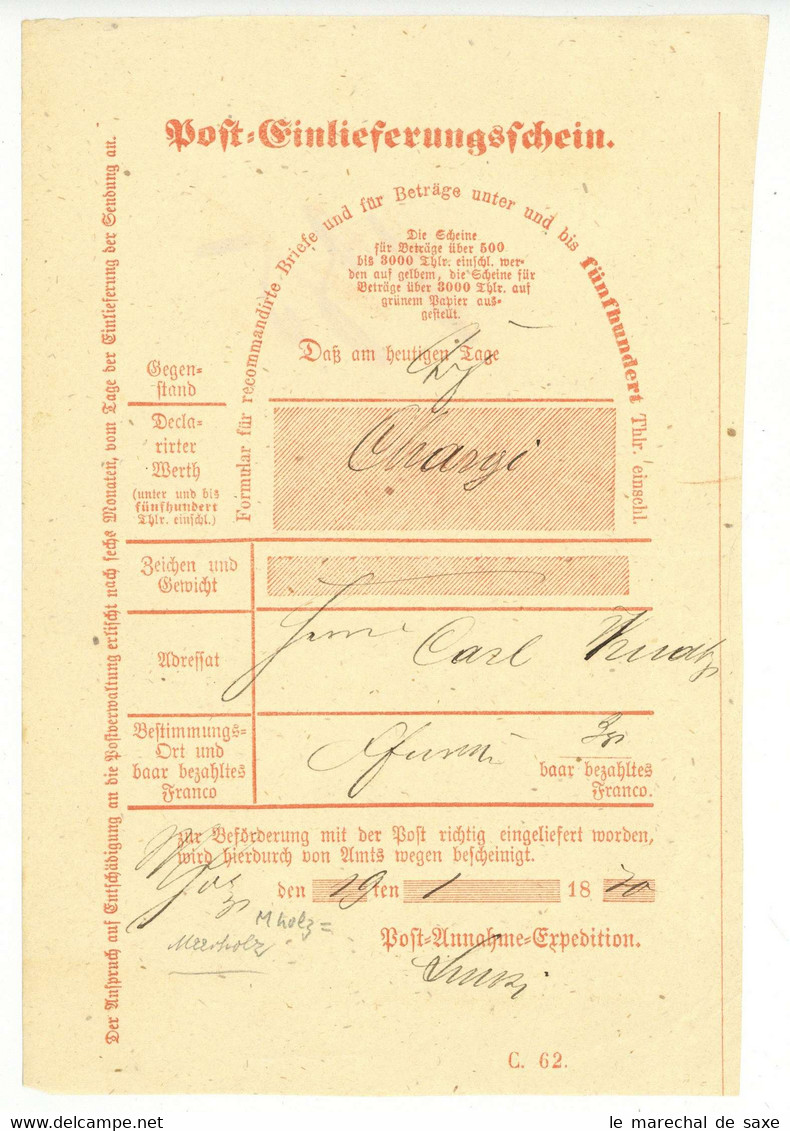 Post-Einlieferungsschein.
Formular für recommandirte Briefe und für Beträge unter und bis fünfhundert Thlr. einschl.
Die Scheine
für Beträge über 500
bis 3000 Thlr. einschl. wer-
den auf gelbem, die Scheine für
Beträge über 3000 Thlr. auf
grünem Papier aus-
gestellt.
Daß am heutigen Tage
Gegen-
stand
Decla-
rirter
Werth
(unter und bis
fünfhundert
Thlr. einschl.)
Chargé
Zeichen und
Gewicht
Adressat
Herrn Carl
Bestimmungs-
Ort und
baar bezahltes
Franco
baar bezahltes
Franco.
zur Beförderung mit der Post richtig eingeliefert worden,
wird hierdurch von Amts wegen bescheinigt.
den 19ten 1 1870
M holz =
Meerholz
Post-Annahme-Expedition.
C. 62.
Der Anspruch auf Entschädigung an die Postverwaltung erlischt nach sechs Monaten, vom Tage der Einlieferung der Sendung an.
le marechal de saxe